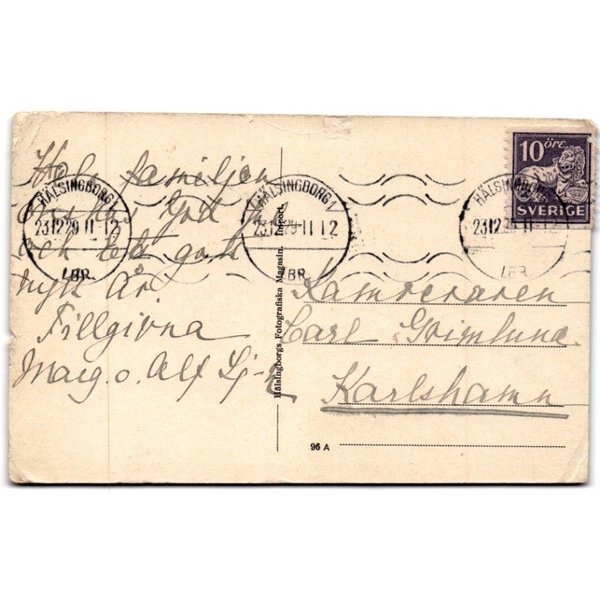 Hela familjen
önskas God Jul
och ett gott
nytt År.
Tillgivna
Maig. o. Alf
HÄLSINGBORG 1
23.12.29.11-12
LBR.
HÄLSINGBORG 1
23.12.29-11-12
LBR.
HÄLSINGBORG 1
23.12.29.11-12
LBR
10 ÖRE
SVERIGE
Hälsingborgs Fotografiska Magasin.
Kamreraren
Carl Grimlund
Karlshamn
96 A